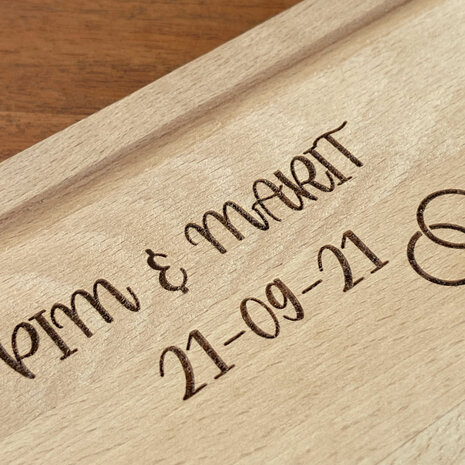 PIM & MARIT
21-09-21